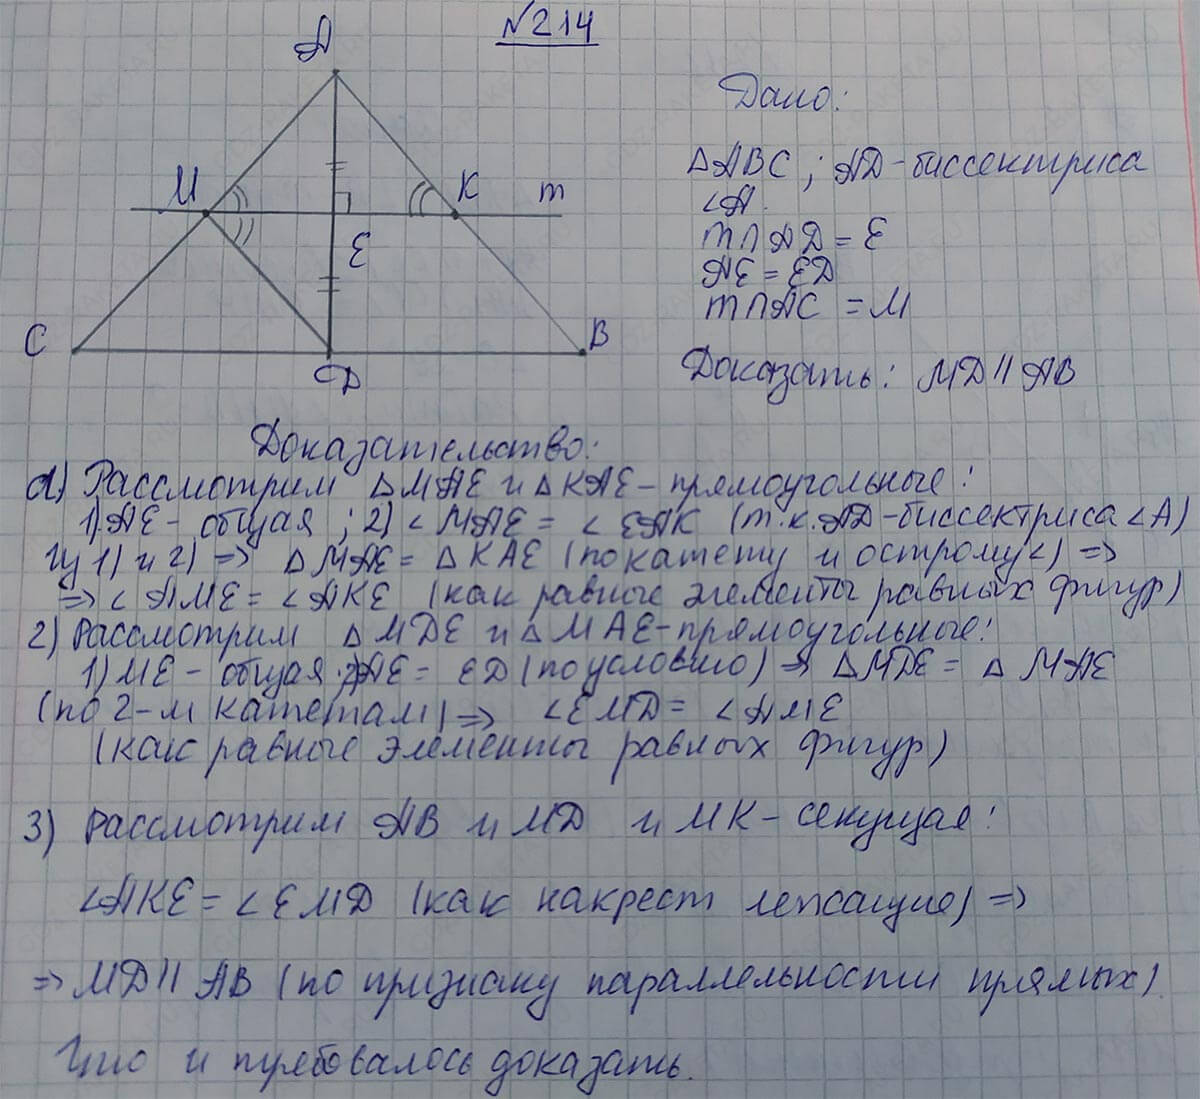 №214
A
M
K
m
E
C
D
B
Дано:
△ABC; AD-биссектриса
∠A.
m∩AD=E
AE=ED
m∩AC=M
Доказать: MD∥AB
Доказательство:
1) Рассмотрим △MAE и △KAE-прямоугольные:
1) AE-общая; 2) ∠MAE=∠EAK (т.к. AD-биссектриса ∠A)
Из 1) и 2) => △MAE=△KAE (по катету и острому ∠) =>
=> ∠AME=∠AKE (как равные элементы равных фигур)
2) Рассмотрим △MDE и △MAE-прямоугольные:
1) ME-общая; 2) AE=ED (по условию) => △MDE=△MAE
(по 2-м катетам) => ∠EMD=∠AME
(как равные элементы равных фигур)
3) Рассмотрим AB и MD и MK-секущая:
∠AKE=∠EMD (как накрест лежащие) =>
=> MD∥AB (по признаку параллельности прямых).
Что и требовалось доказать.